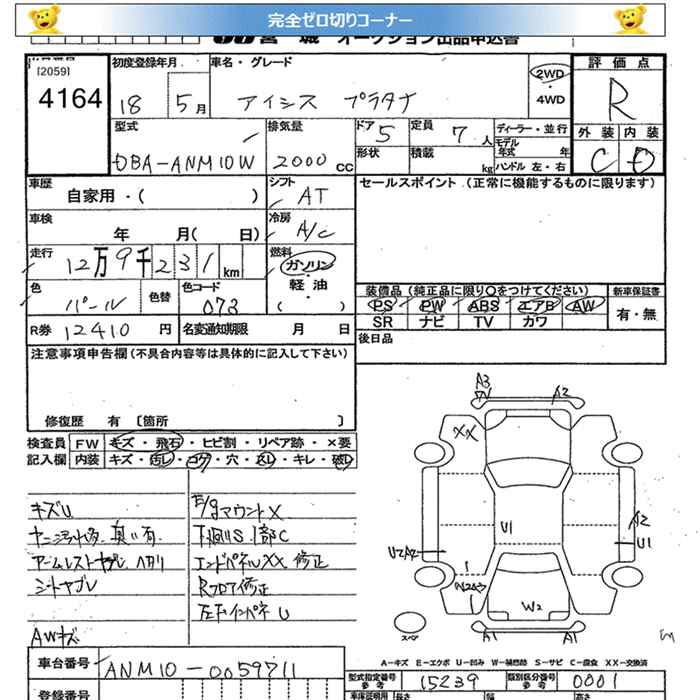 完全ゼロ切りコーナー
宮城 オークション出品申込書
[2059]
4164
初度登録年月
18 5月
車名・グレード
アイシス プラタナ
2WD
・
4WD
評価点
R
外装 内装
C D
型式
DBA-ANM10W
排気量
2000 CC
ドア 5
形状
定員 7 人
積載 kg
ディーラー・並行
モデル年式 年
ハンドル 左・右
車歴
自家用・( )
シフト
AT
セールスポイント (正常に機能するものに限ります)
車検
年 月( 日)
冷房
A/C
走行
12万9千231km
燃料
ガソリン
・
軽油
・
( )
色
パール
色替
色コード
073
装備品 (純正品に限り○をつけてください)
PS PW ABS エアB AW
SR ナビ TV カワ
新車保証書
有・無
R券 12410 円
名変通知期限 月 日
後日品
注意事項申告欄 (不具合内容等は具体的に記入して下さい)
修復歴 有 [箇所 ]
検査員
記入欄
FW キズ・飛石・ヒビ割・リペア跡・×要
内装 キズ・汚レ・コゲ・穴・スレ・キレ・破レ
キズU
ヤニ汚れ多 臭い有
アームレストヤブレ ヘタリ
シートヤブレ
AWキズ
E/gマウントX
下廻りS 1部C
エンドパネルXX 修正
Rフロア修正
左右インパネ U
A3
A2
XX
U1
A2
U1
U2A2
W2
A1
A1
スペア
A-キズ E-エクボ U-凹み W-補修跡 S-サビ C-腐食 XX-交換済
車台番号 ANM10-0059711
型式指定番号 参考 15239
類別区分番号 参考 0001
登録番号
車庫証明用 長さ 幅 高さ